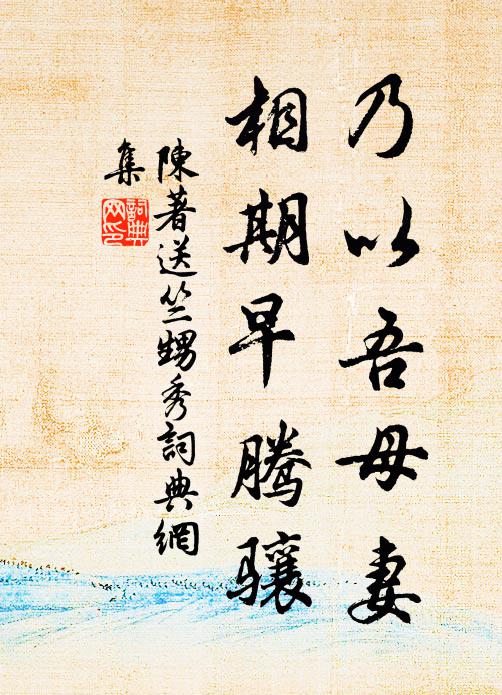 乃以吾母妻
相期早腾骧
陳著送竺甥秀詞典網
集
詞典
网印